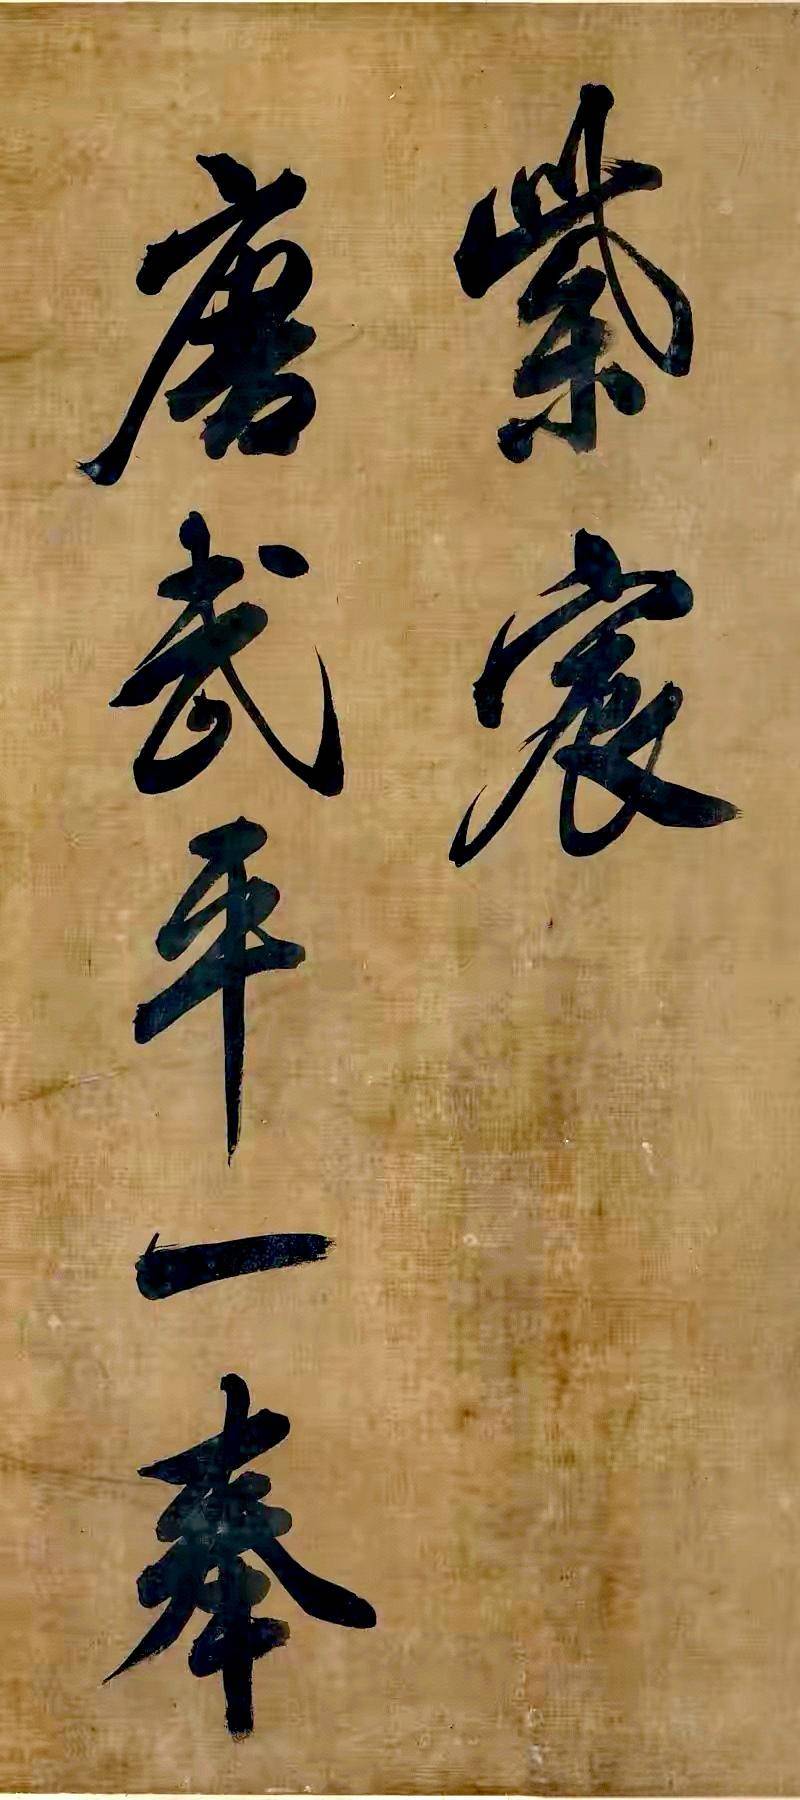 紫宸
唐武平一奉